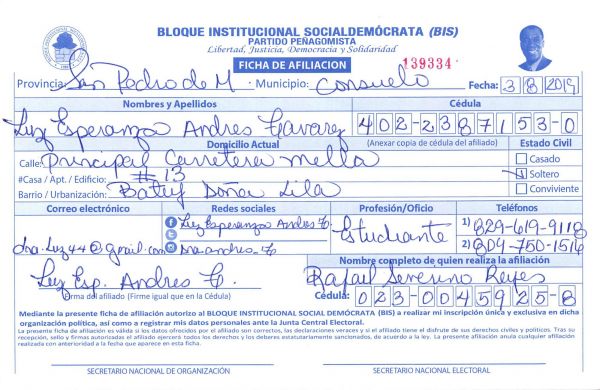 BLOQUE INSTITUCIONAL SOCIALDEMÓCRATA (BIS)
PARTIDO PEÑAGOMISTA
Libertad, Justicia, Democracia y Solidaridad
FICHA DE AFILIACION
139334
Provincia: San Pedro de M Municipio: Consuelo Fecha: 3 8 2019
Nombres y Apellidos Cédula
Luz Esperanza Andres Tavarez 402-2387153-0
Domicilio Actual (Anexar copia de cédula del afiliado) Estado Civil
Calle: Principal Carretera mella Casado
#Casa / Apt. / Edificio: #13 Soltero
Barrio / Urbanización: Batey Doña Lila Conviviente
Correo electrónico Redes sociales Profesión/Oficio Teléfonos
Luz Esperanza Andres T. Estudiante 1) 829-619-9118
dna.luz44@gmail.com Dna.andres_T 2) 809-750-1516
Nombre completo de quien realiza la afiliación
Luz Esp. Andres T. Rafael Severino Reyes
Firma del afiliado (Firme igual que en la Cédula) Cédula: 023-0045925-8
Mediante la presente ficha de afiliación autorizo al BLOQUE INSTITUCIONAL SOCIAL DEMÓCRATA (BIS) a realizar mi inscripción única y exclusiva en dicha
organización política, así como a registrar mis datos personales ante la Junta Central Electoral.
La presente ficha de afiliación es válida si los datos ofrecidos por el afiliado son correctos, las declaraciones veraces y si el afiliado tiene el disfrute de sus derechos civiles y políticos. Tras su
recepción, sello y firmas autorizadas el afiliado ejercerá todos los derechos y los deberes estatutariamente sancionados, de acuerdo a la ley. La presente afiliación anula cualquier afiliación
realizada con anterioridad a la fecha que aparece en esta ficha.
SECRETARIO NACIONAL DE ORGANIZACIÓN SECRETARIO NACIONAL ELECTORAL